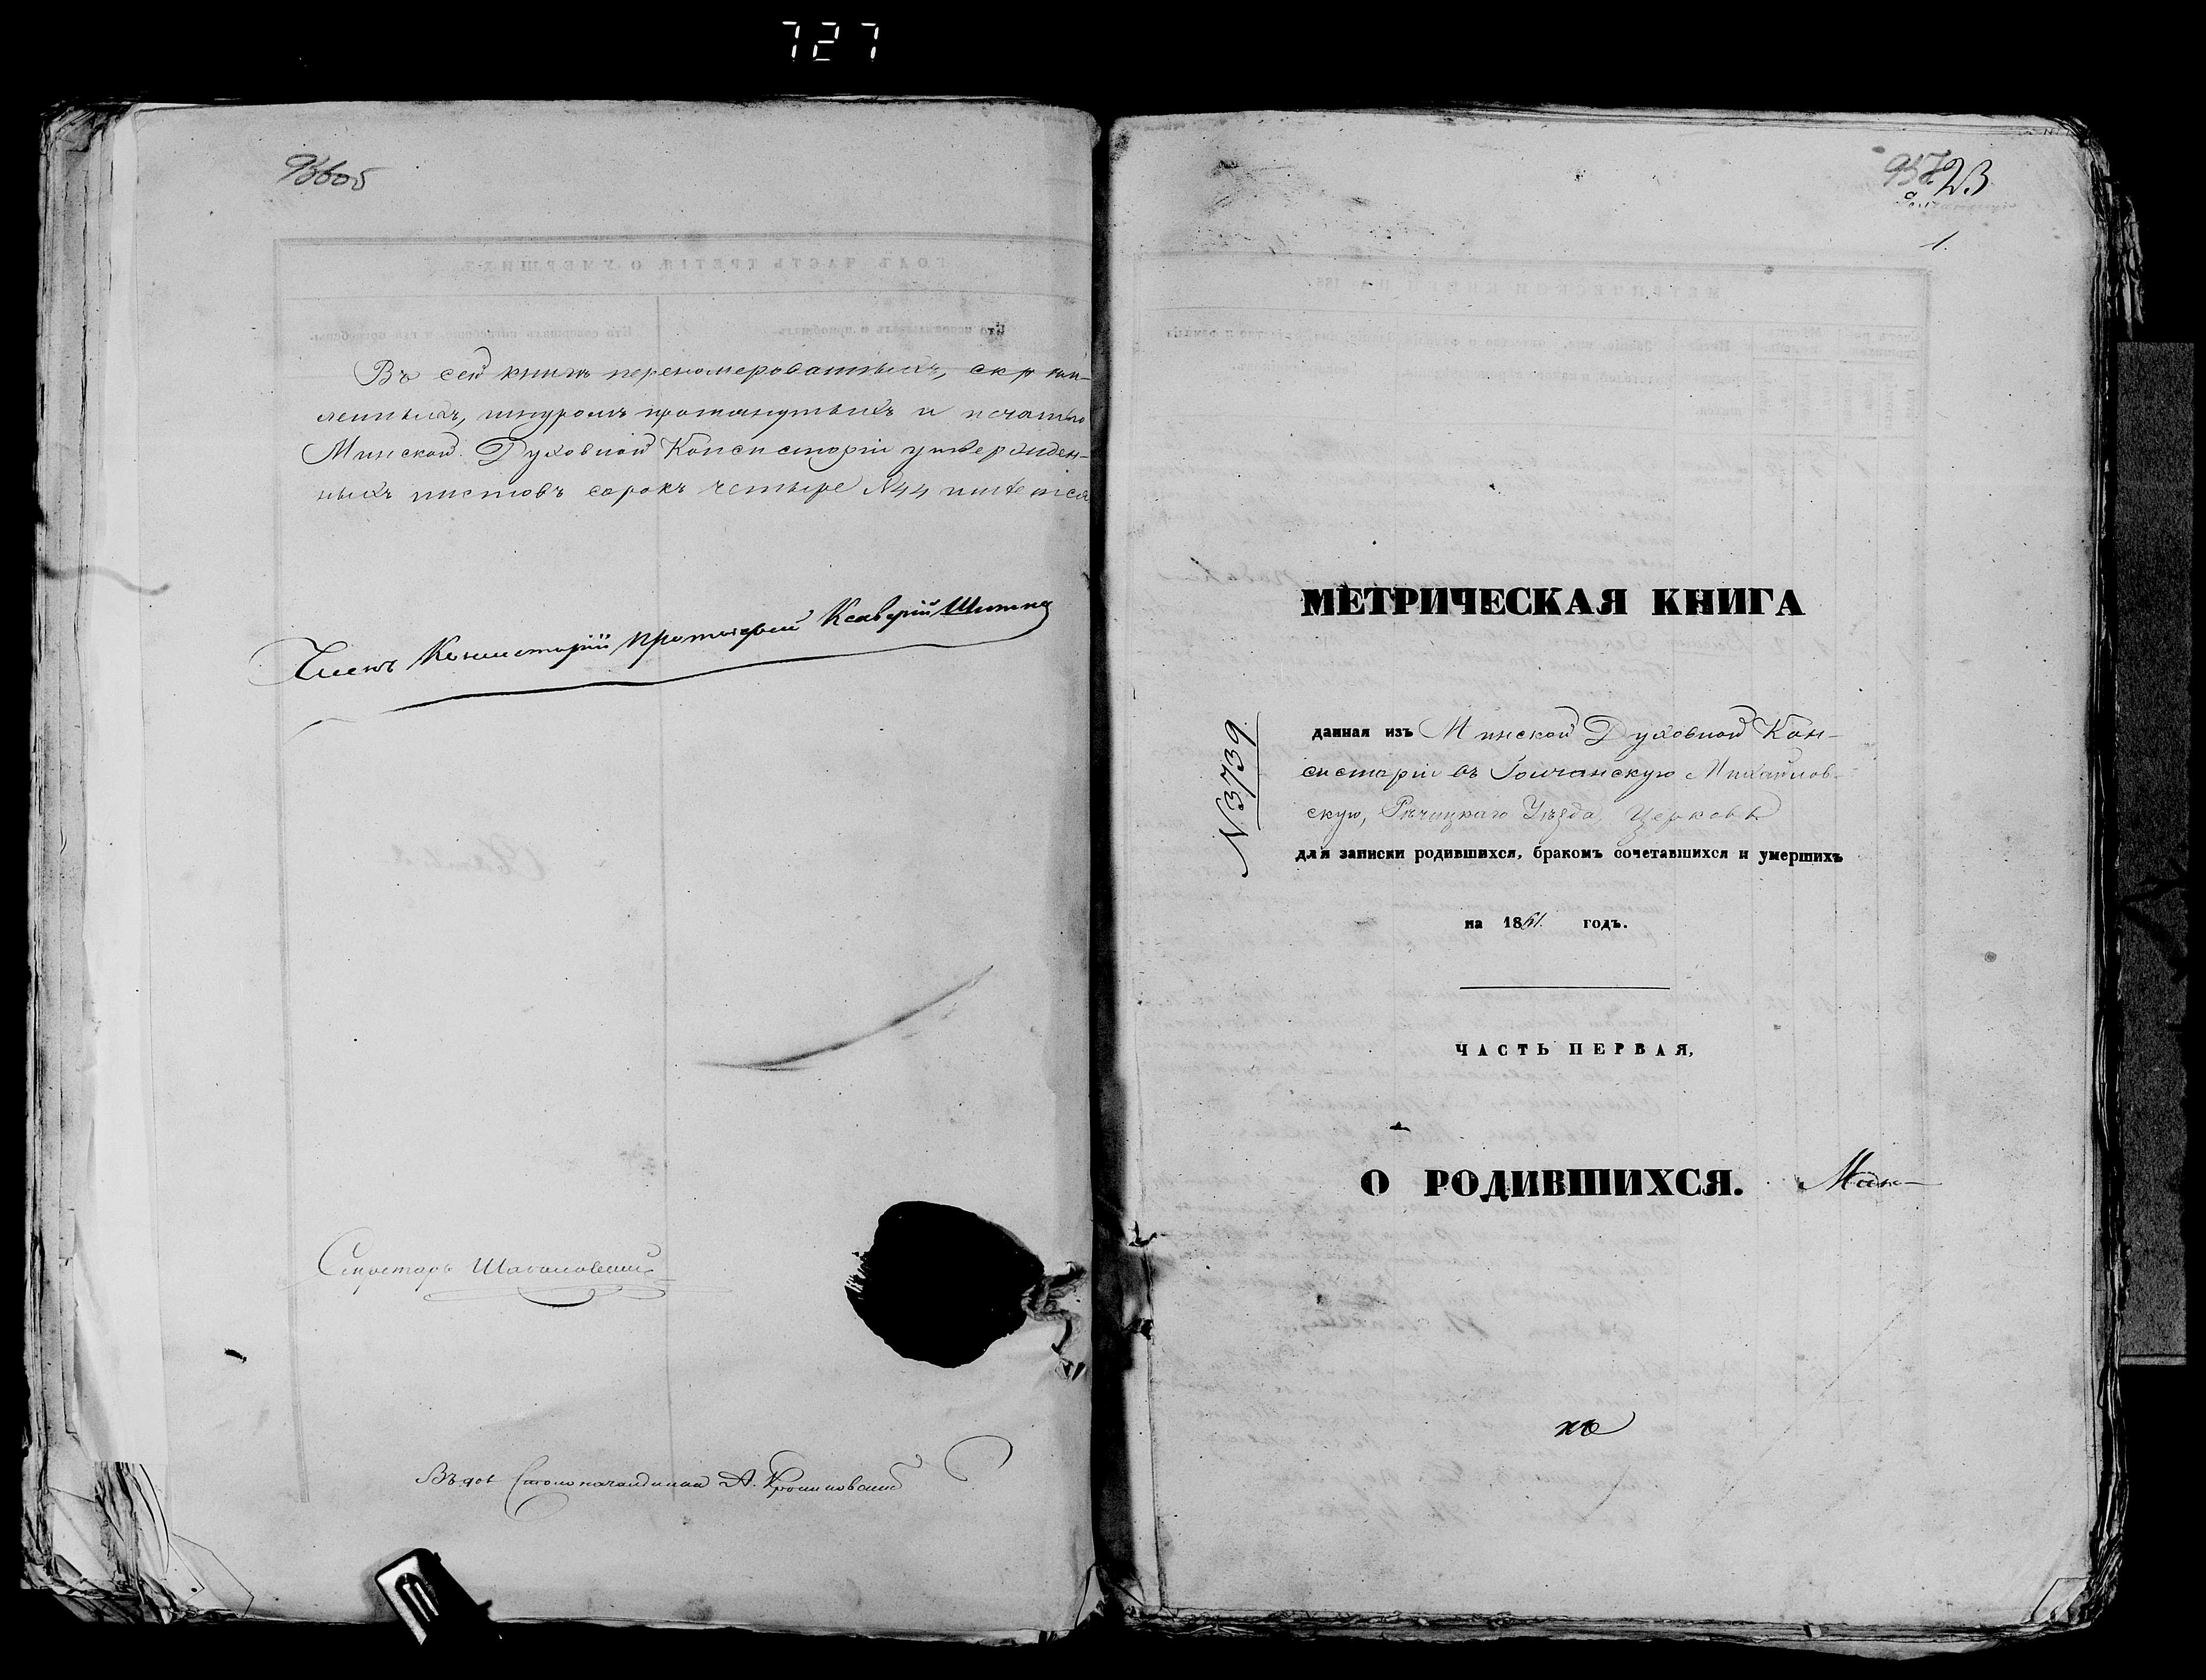 727
936об
Въ сей книгѣ перенумерованныхъ, скрѣп-
ленныхъ, шнуромъ протянутыхъ и печатью
Минской Духовной Консисторіи утвержден-
ныхъ листовъ сорокъ четыре N44 имѣется
Членъ Консисторіи Протоіерей Ксаверій
Секретарь
Столоначальника А.
937
23
1.
МЕТРИЧЕСКАЯ КНИГА
N 3739
данная изъ Минской Духовной Кон-
систоріи въ Михайлов-
скую, Рѣчицкаго Уѣзда, Церковь
для записки родившихся, бракомъ сочетавшихся и умершихъ
на 1861 годъ.
ЧАСТЬ ПЕРВАЯ,
О РОДИВШИХСЯ.